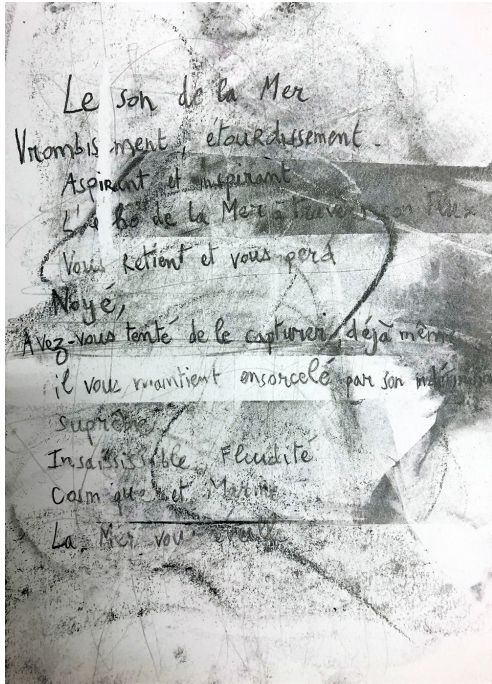 Le son de la Mer
Vrombissment, étourdissement.
Aspirant et inspirant
de la Mer à travers son Flux
Vous Retient et vous perd
Noyé,
Avez-vous tenté de le capturer, déjà même
il vous maintient ensorcelé par son
suprême
Insaisissible, Fluidité
Cosmique et Marine
La Mer vous